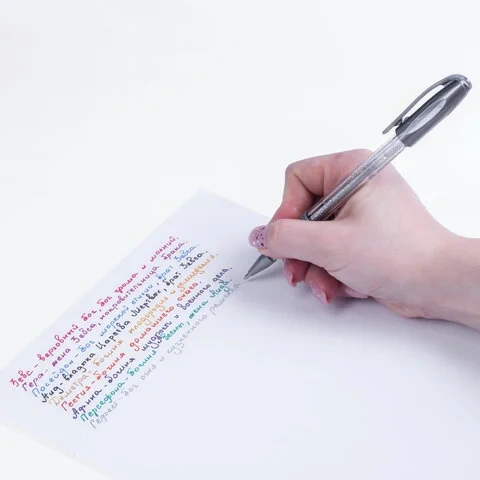 Зевс - верховный бог, бог грома и молний.
Гера - жена Зевса, покровительница брака.
Посейдон - бог морской стихии, брат Зевса.
Аид - владыка Царства Мертвых, брат Зевса.
Деметра - богиня плодородия и земледелия.
Гестия - богиня домашнего очага.
Афина - богиня мудрости и военного дела.
Персефона - богиня Весны, жена Аида.
Гефест - бог огня и кузнечного ремесла